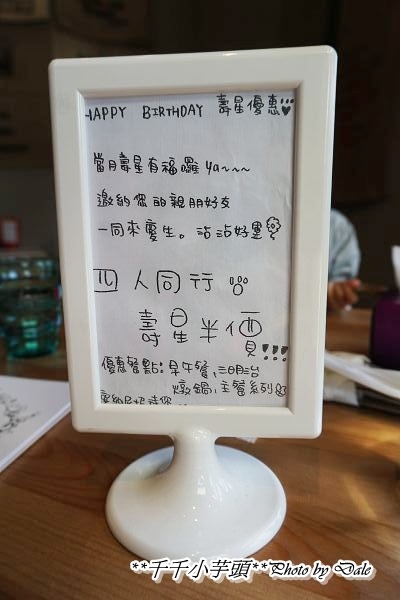 HAPPY BIRTHDAY 壽星優惠
當月壽星有福囉 ya~~~
邀約您的親朋好友
一同來慶生。沾沾好運
四人同行
壽星半價!!!
優惠餐點:早午餐,三明治
燉鍋,主餐系列
**千千小芋頭**Photo by Dale